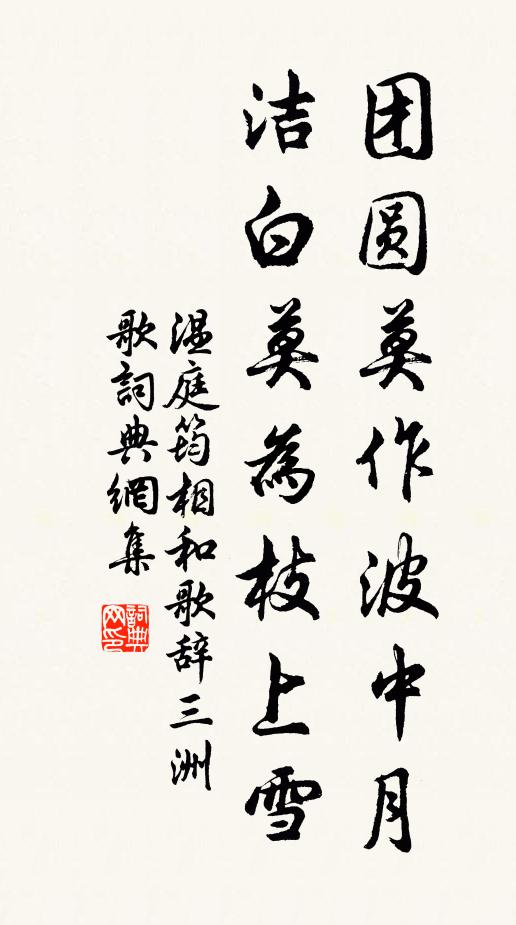 团圆莫作波中月
洁白莫為枝上雪
温庭筠相和歌辞三洲
歌詞典網集
詞典网印